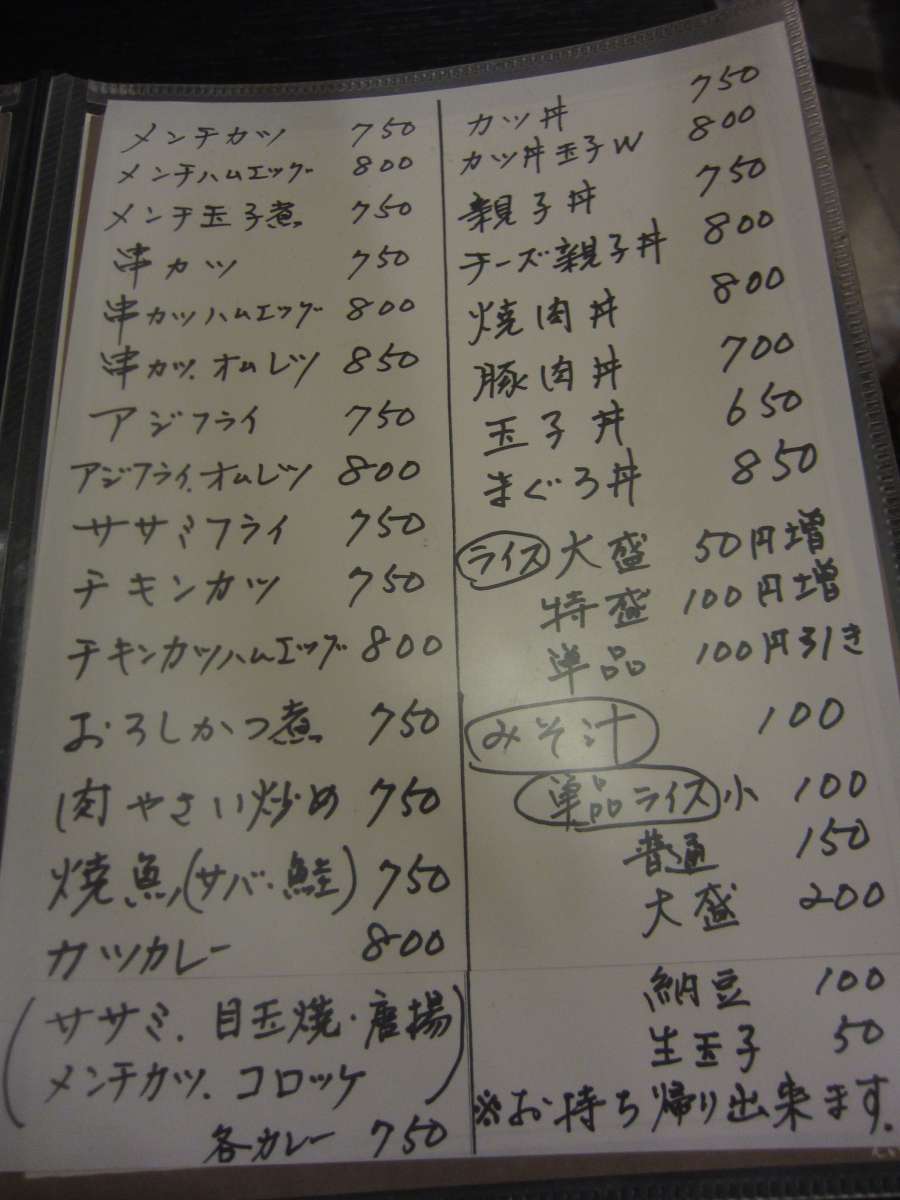 メンチカツ 750
メンチハムエッグ 800
メンチ玉子煮 750
串カツ 750
串カツハムエッグ 800
串カツ.オムレツ 850
アジフライ 750
アジフライ.オムレツ 800
ササミフライ 750
チキンカツ 750
チキンカツハムエッグ 800
おろしかつ煮 750
肉やさい炒め 750
焼魚(サバ・鮭) 750
カツカレー 800
(ササミ.目玉焼・唐揚
メンチカツ.コロッケ)
各カレー 750
カツ丼 750
カツ丼玉子W 800
親子丼 750
チーズ親子丼 800
焼肉丼 800
豚肉丼 700
玉子丼 650
まぐろ丼 850
ライス 大盛 50円増
特盛 100円増
単品 100円引き
みそ汁 100
単品ライス 小 100
普通 150
大盛 200
納豆 100
生玉子 50
※お持ち帰り出来ます.